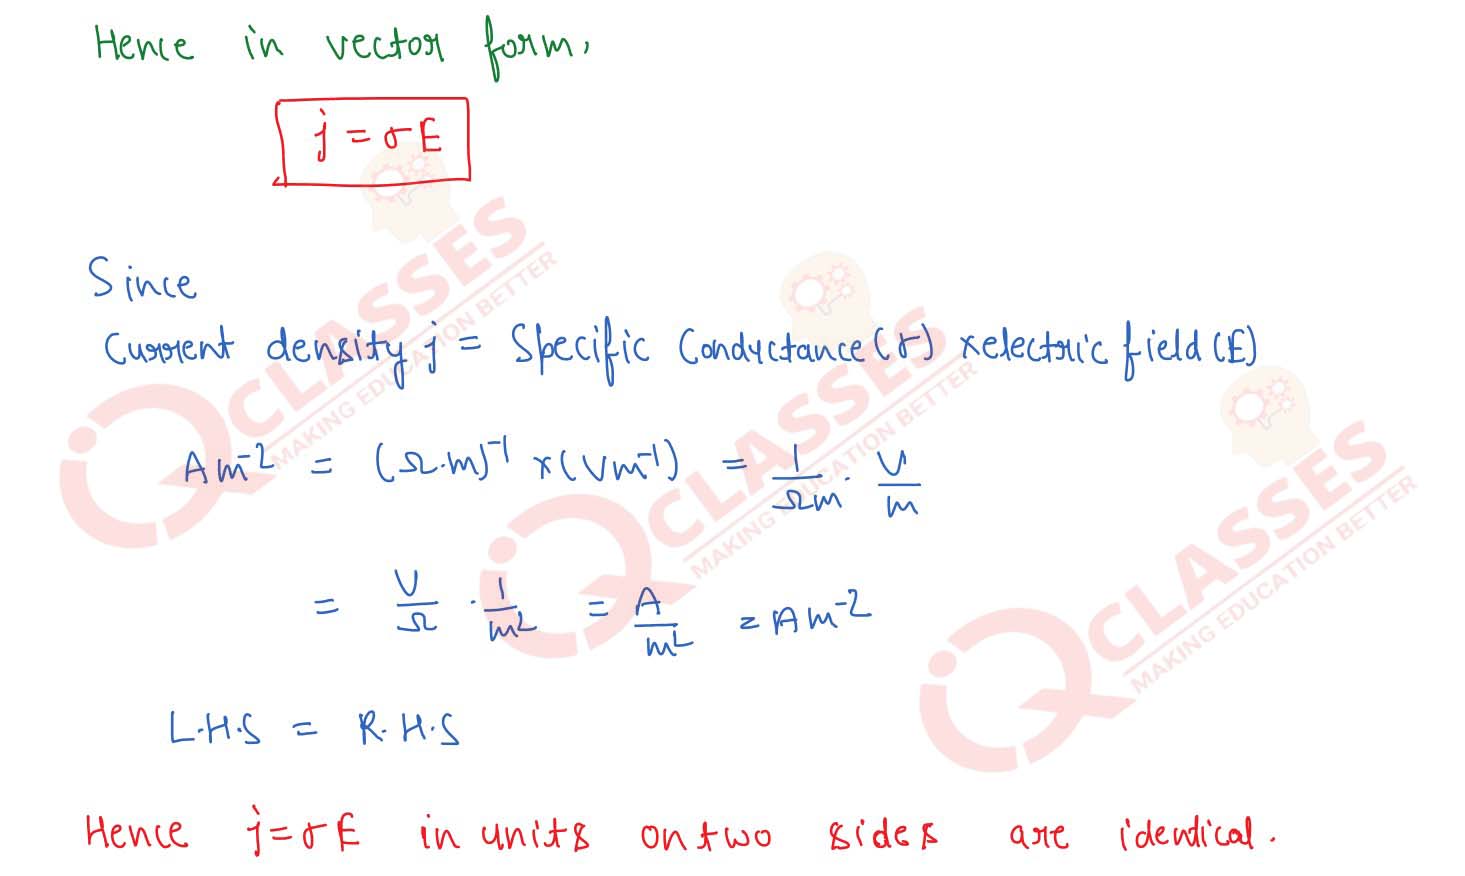 Hence in vector form,
j = σE
Since
Current density j = Specific Conductance (σ) x electric field (E)
A m⁻² = (Ω.m)⁻¹ x (V m⁻¹) = 1/Ωm . V/m
= V/Ω . 1/m² = A/m² = A m⁻²
L.H.S = R.H.S
Hence j = σE in units on two sides are identical.
iQ CLASSES
MAKING EDUCATION BETTER
iQ CLASSES
MAKING EDUCATION BETTER
iQ CLASSES
MAKING EDUCATION BETTER